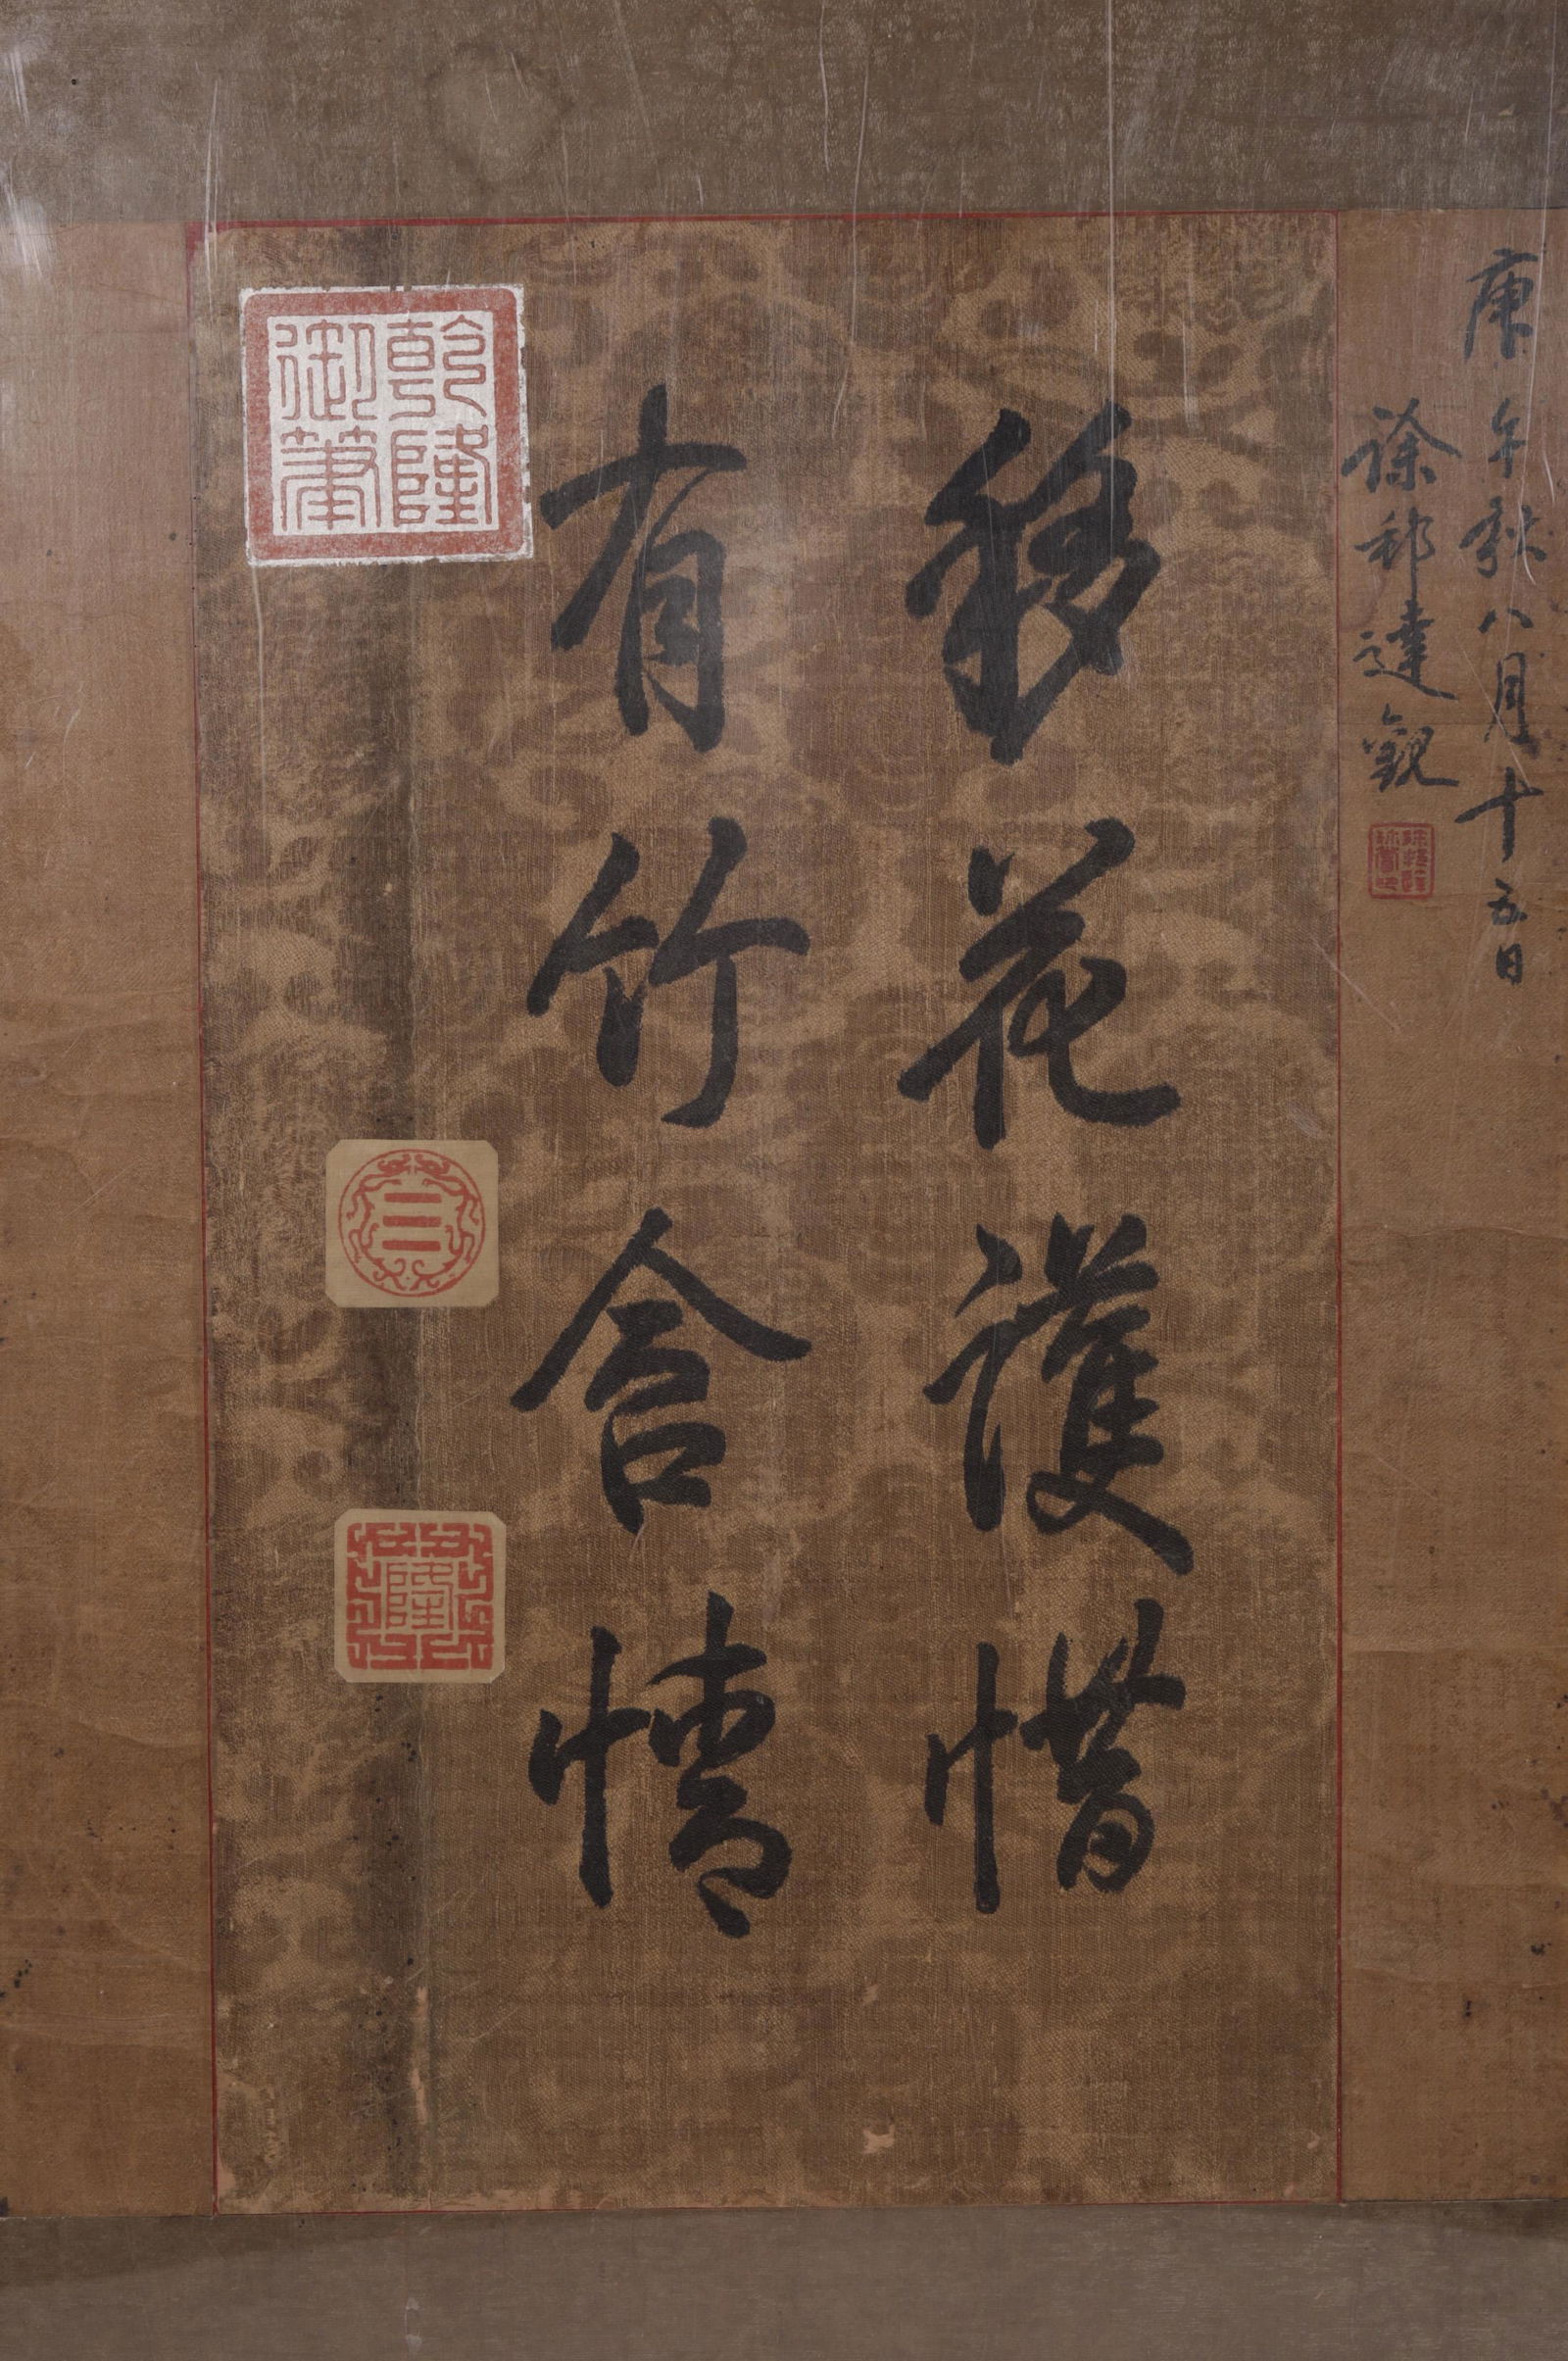 庚午秋八月十五日
徐邦達觀
移花護惜
有竹含情
乾隆御筆